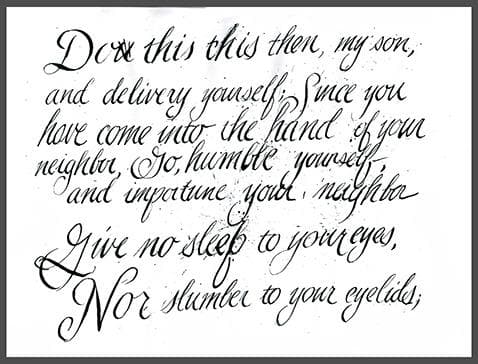 Do this this then, my son,
and delivery yourself; Since you
have come into the hand of your
neighbor, Go, humble yourself,
and importune your neighbor
Give no sleep to your eyes,
Nor slumber to your eyelides;